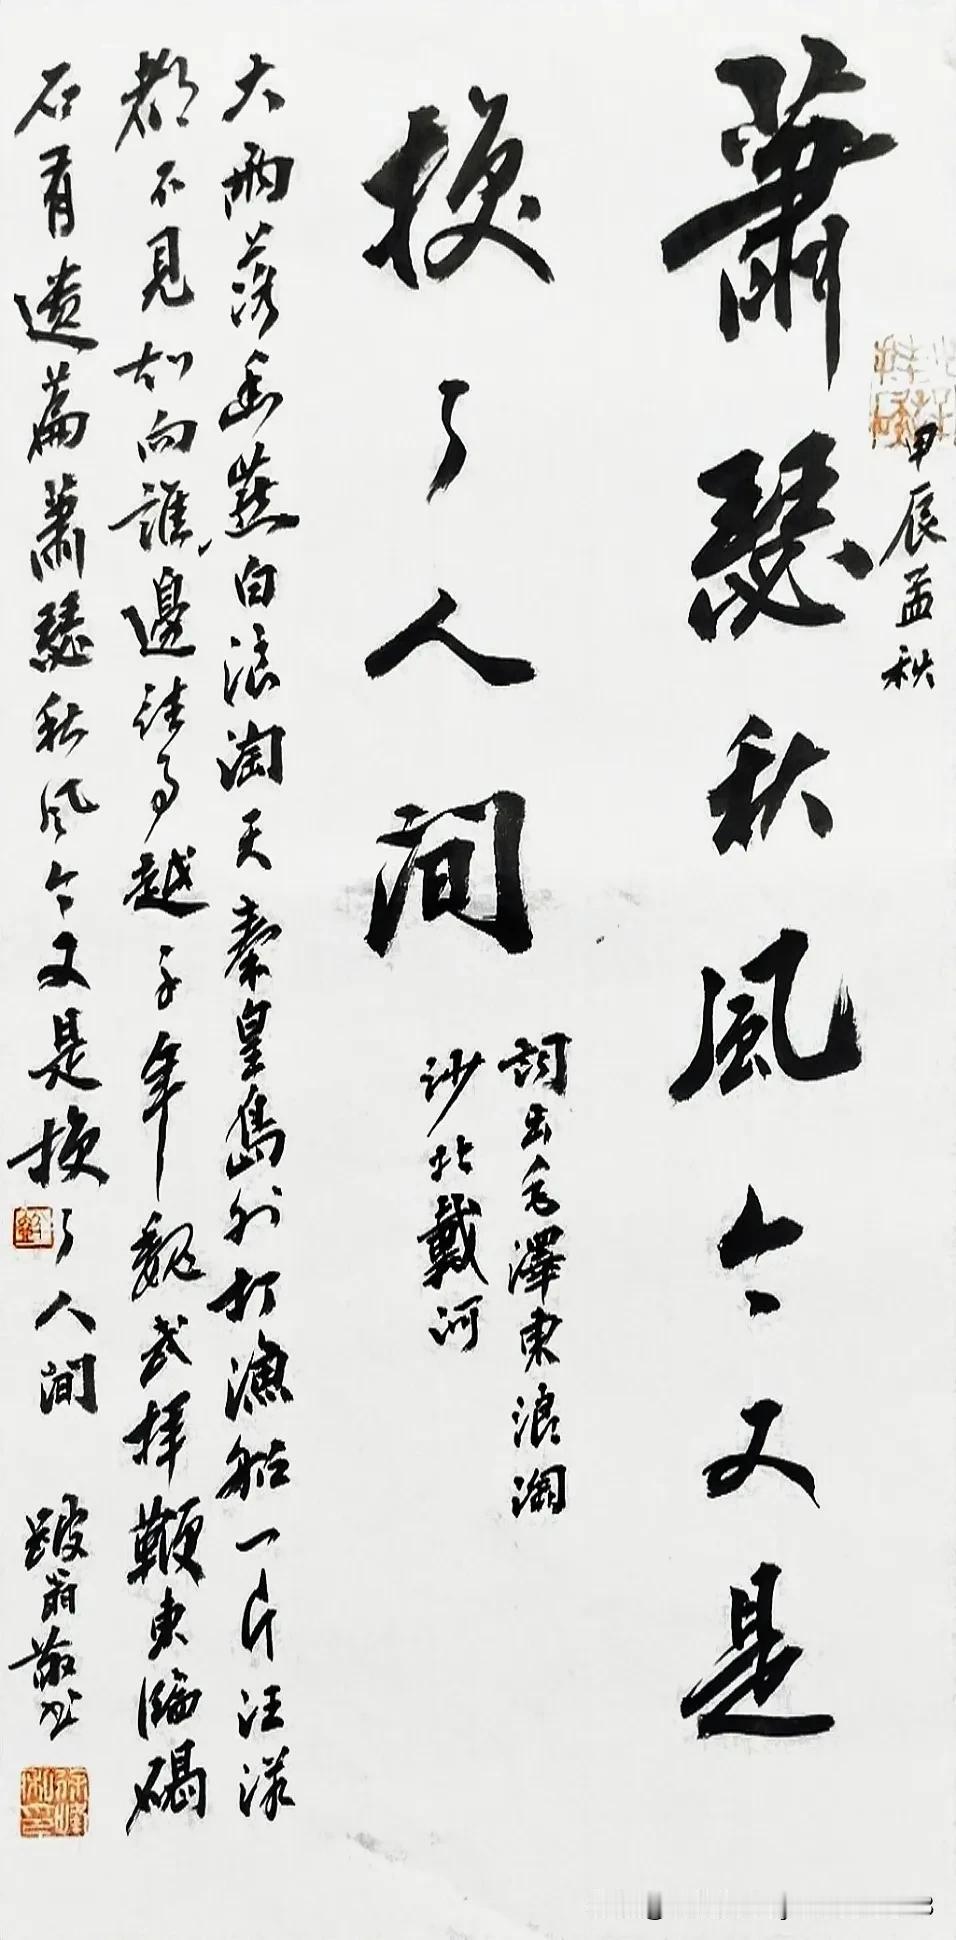 甲辰孟秋
蕭瑟秋風今又是
換了人间
詞出毛澤東浪淘
沙北戴河
大雨落幽燕白浪淘天秦皇島外打漁船一片汪洋
都不見知向誰邊往事越千年魏武揮鞭東臨碣
石有遺篇蕭瑟秋風今又是換了人间 跛翁敬书